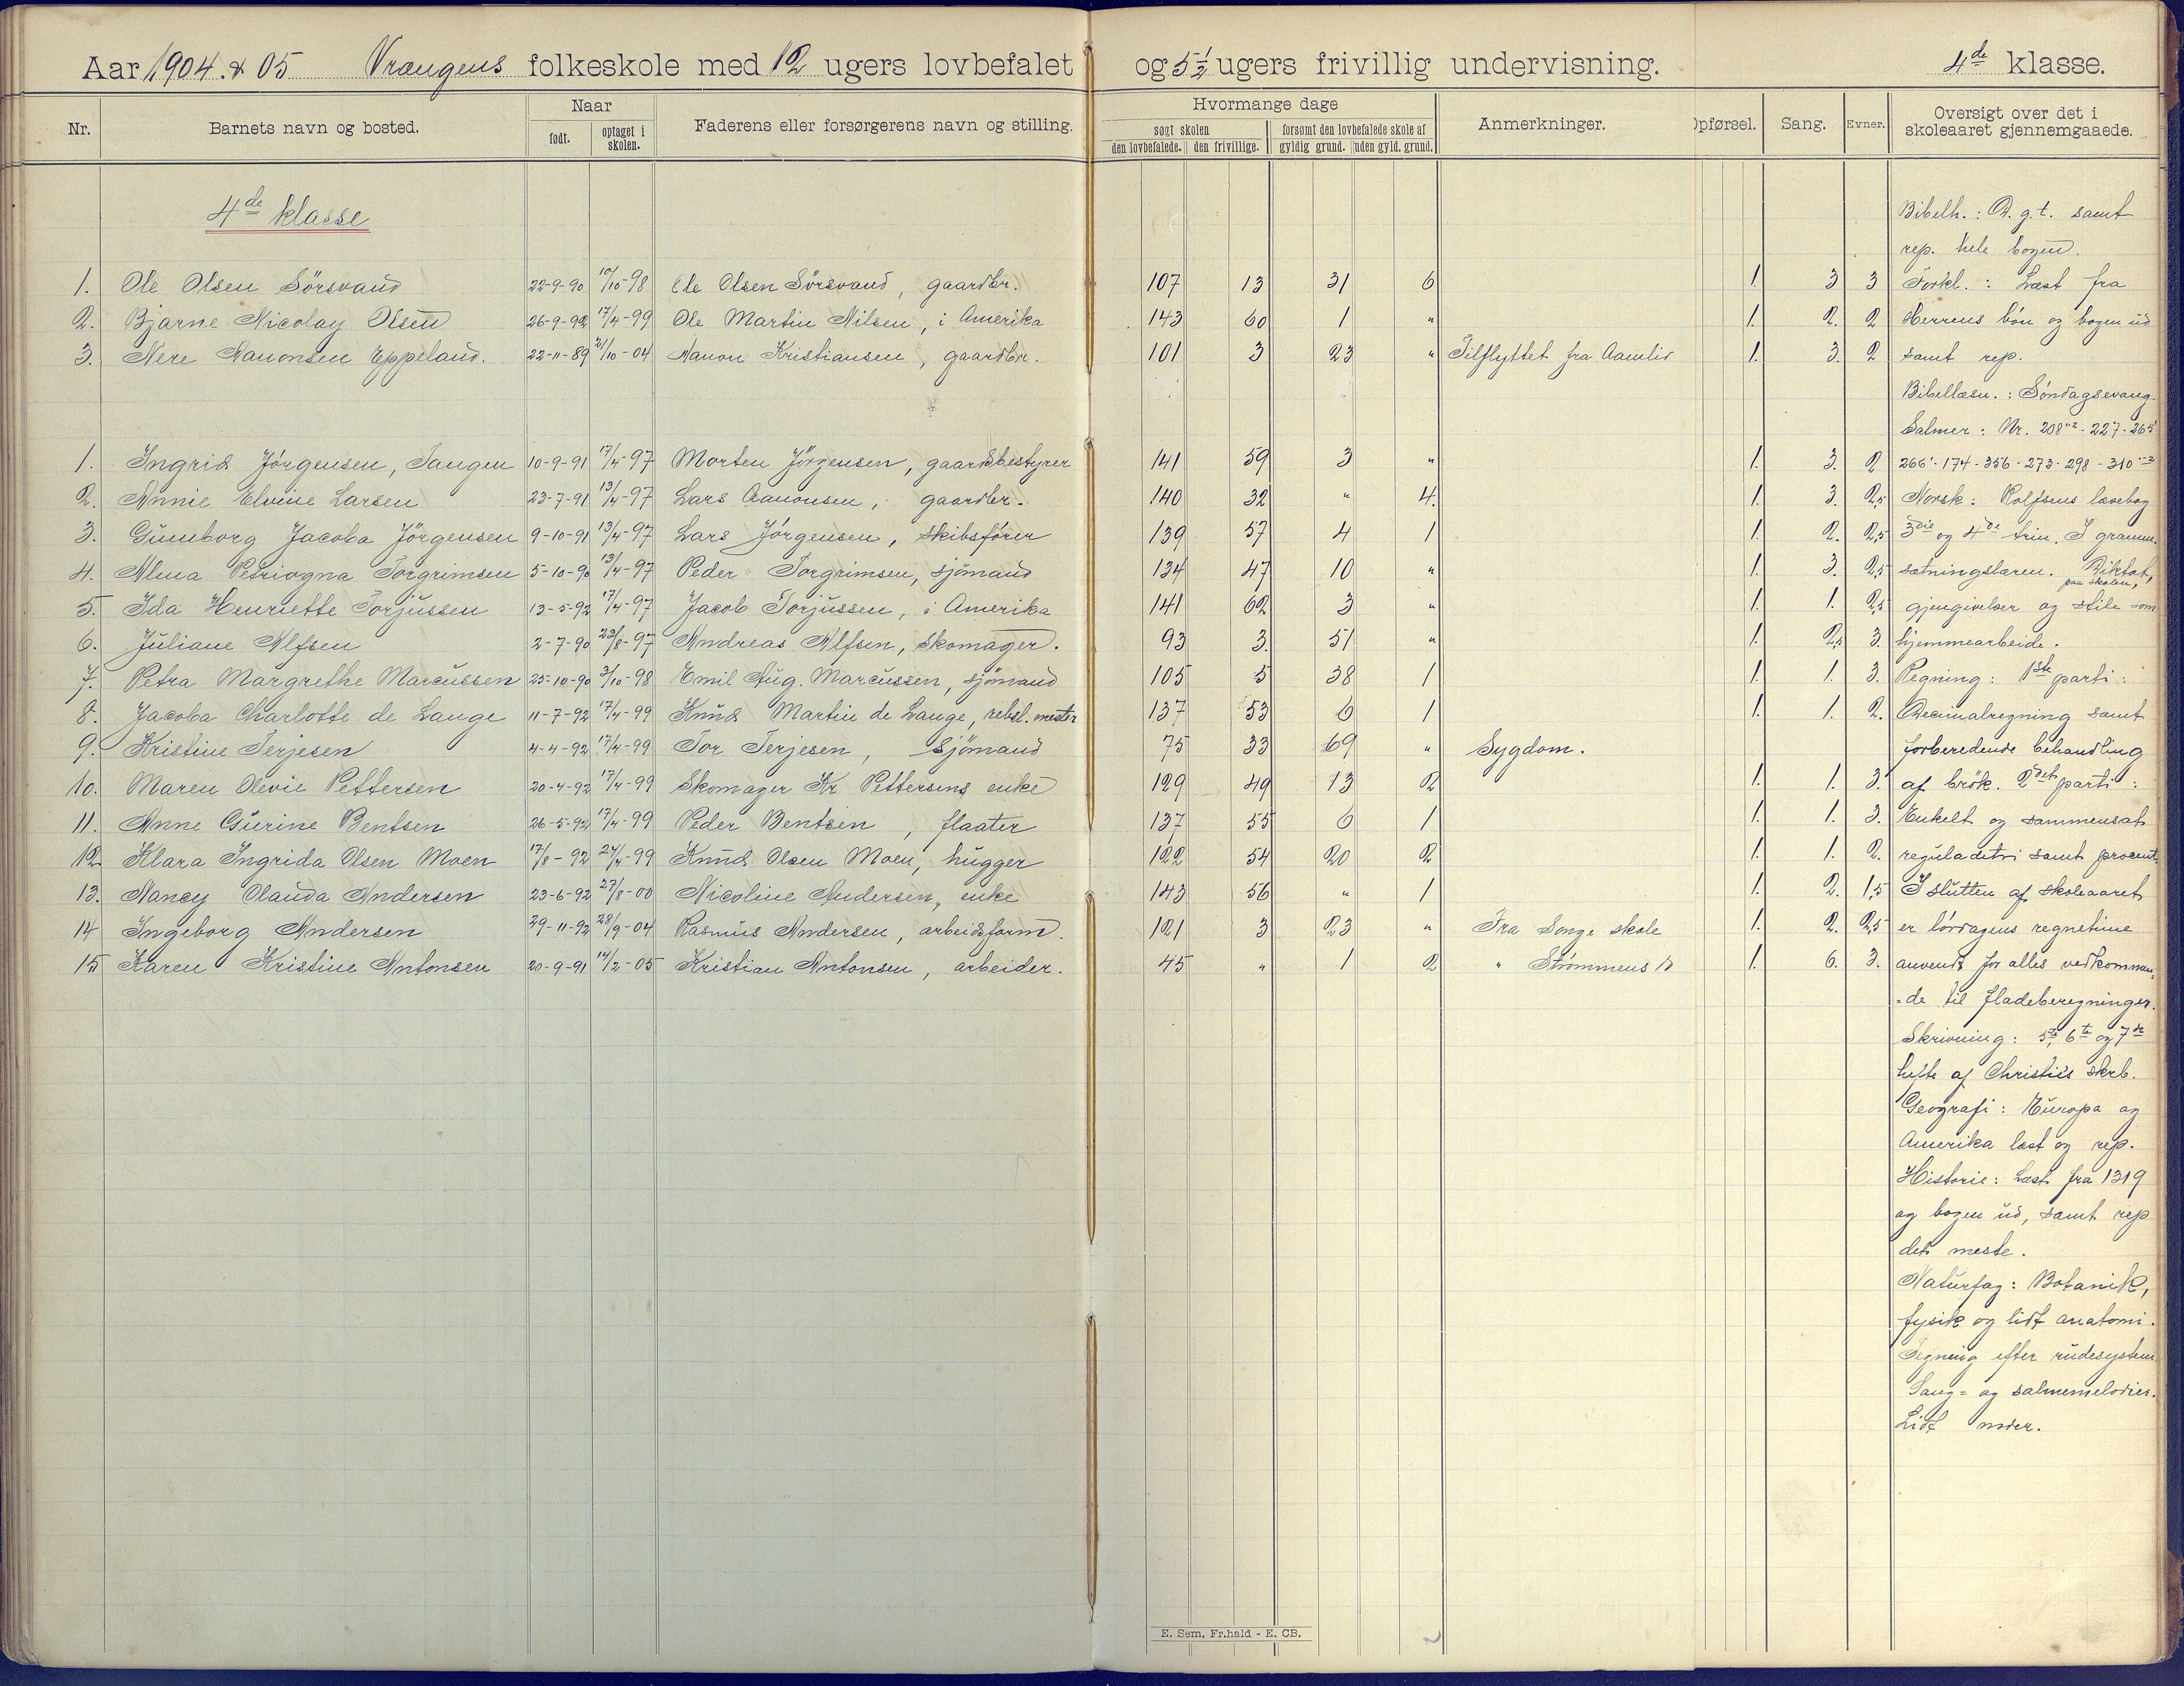 Aar 1904 & 05 Vrangens folkeskole med 12 ugers lovbefalet og 5 1/2 ugers frivillig undervisning. 4de klasse.
Nr. Barnets navn og bosted. Naar født. optaget i skolen. Faderens eller forsørgerens navn og stilling. Hvormange dage søgt skolen den lovbefalede. den frivillige. forsømt den lovbefalede skole af gyldig grund. uden gyld. grund. Anmerkninger. Opførsel. Sang. Evner. Oversigt over det i skoleaaret gjennemgaaede.
4de klasse
1. Ole Olsen Sörsvand 22-9-90 10/10-98 Ole Olsen Sörsvand, gaardbr. 107 13 31 6 1. 3 3
2. Bjarne Nicolay Olsen 26-9-92 17/4-99 Ole Martin Nilsen, i Amerika 143 60 1 " 1. 2. 2
3. Nere Aanonsen Eppeland. 22-11-89 21/10-04 Aanon Kristiansen, gaardbr. 101 3 23 " Tilflyttet fra Aamlid 1. 3. 2
1. Ingrid Jörgensen, Tangen 10-9-91 17/4-97 Morten Jörgensen, gaardsbestyrer 141 59 3 " 1. 3. 2
2. Annie Elvine Larsen 23-7-91 13/4-97 Lars Aanonsen, gaardbr. 140 32 " 4. 1. 3. 2,5
3. Gunborg Jacoba Jörgensen 9-10-91 13/4-97 Lars Jörgensen, skibsförer 139 57 4 1 1. 2. 2,5
4. Alma Torgrimsen 5-10-90 13/4-97 Peder Torgrimsen, sjömand 134 47 10 " 1. 3. 2,5
5. Ida Henriette Torjussen 13-5-92 17/4-97 Jacob Torjussen, i Amerika 141 62 3 " 1. 1. 2,5
6. Juliane Alfsen 2-7-90 23/8-97 Andreas Alfsen, skomager. 93 3. 51 " 1. 2,5 3.
7. Petra Margrethe Marcussen 25-10-90 3/10-98 Emil Aug. Marcussen, sjömand 105 5 38 1 1. 1. 3.
8. Jacoba Charlotte de Lange 11-7-92 17/4-99 Knud Martin de Lange, rebsl. mester 137 53 6 1 1. 1. 2.
9. Kristine Terjesen 4-4-92 17/4-99 Tor Terjesen, Sjömand 75 33 69 " Sygdom.
10. Maren Olevie Pettersen 20-4-92 17/4-99 Skomager Kr Pettersens enke 129 49 13 2 1. 1. 3.
11. Anne Gurine Bentsen 26-5-92 17/4-99 Peder Bentsen, flaater 137 55 6 1 1. 1. 3.
12 Klara Ingrida Olsen Moen 17/8-92 24/4-99 Knud Olsen Moen, hugger 122 54 20 2 1. 1. 2.
13. Nancy Olauda Andersen 23-6-92 27/8-00 Nicoline Andersen, enke 143 56 " 1 1. 2. 1,5
14 Ingeborg Andersen 29-11-92 28/9-04 Rasmus Andersen, arbeidsform. 121 3 23 " Fra Songe skole 1. 2. 2,5
15 Karen Kristine Antonsen 20-9-91 14/2-05 Kristian Antonsen, arbeider. 45 " 1 2 " Strömmens 1. 6. 3.
Bibelh.: D. g. t. samt
rep. hele bogen.
Forkl.: Læst fra
Herrens bön og bogen ud
samt rep.
Bibellæsn.: Söndagsevang.
Salmer: Nr. 208 - 227 - 265
266 - 174 - 356 - 273 - 298 - 310
Norsk: Rolfsens læsebog
3die og 4de trin. I gramm.
sætningslæren. Diktat,
paa skolen,
gjengivelser og stile som
hjemmearbeide.
Regning: 1ste parti:
Decimalregning samt
forberedende behandling
af brök. 2det parti:
Enkelt og sammensat
reguladetri samt procent.
I slutten af skoleaaret
er lördagens regnetime
anvendt for alles vedkommen=
=de til fladeberegninger.
Skrivning: 5te, 6te og 7de
hefte af Christies skrb.
Geografi: Europa og
Amerika læst og rep.
Historie: Læst fra 1319
og bogen ud, samt rep
det meste.
Naturfag: Botanik,
fysik og lidt anatomi.
Tegning efter rudesystem
Sang= og salmemelodier.
Lidt noder.
E. Sem, Fr.hald - E. CB.